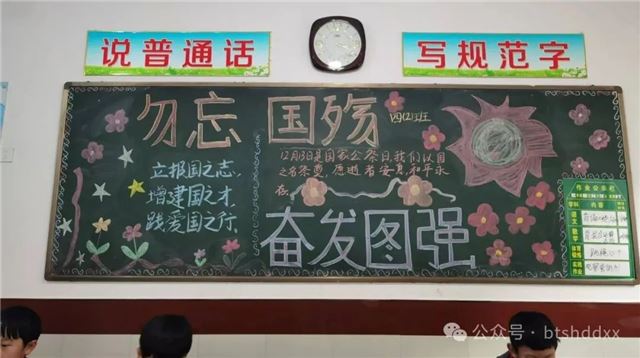 说普通话
写规范字
勿忘国殇
四(2)班
立报国之志,
增建国之才,
践爱国之行,
12月13日是国家公祭日,我们以国
之名祭奠,愿逝者安息,和平永
存。
奋发图强
作业公示栏
学科 内容
语文
数学
体育锻炼
实践作业
公众号·btshddxx